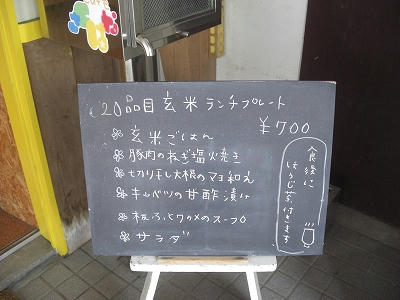 20品目玄米ランチプレート
¥700
玄米ごはん
豚肉のねぎ塩焼き
切り干し大根のマヨ和え
キャベツの甘酢漬け
板ふとワカメのスープ
サラダ
食後に
ほうじ茶付きます